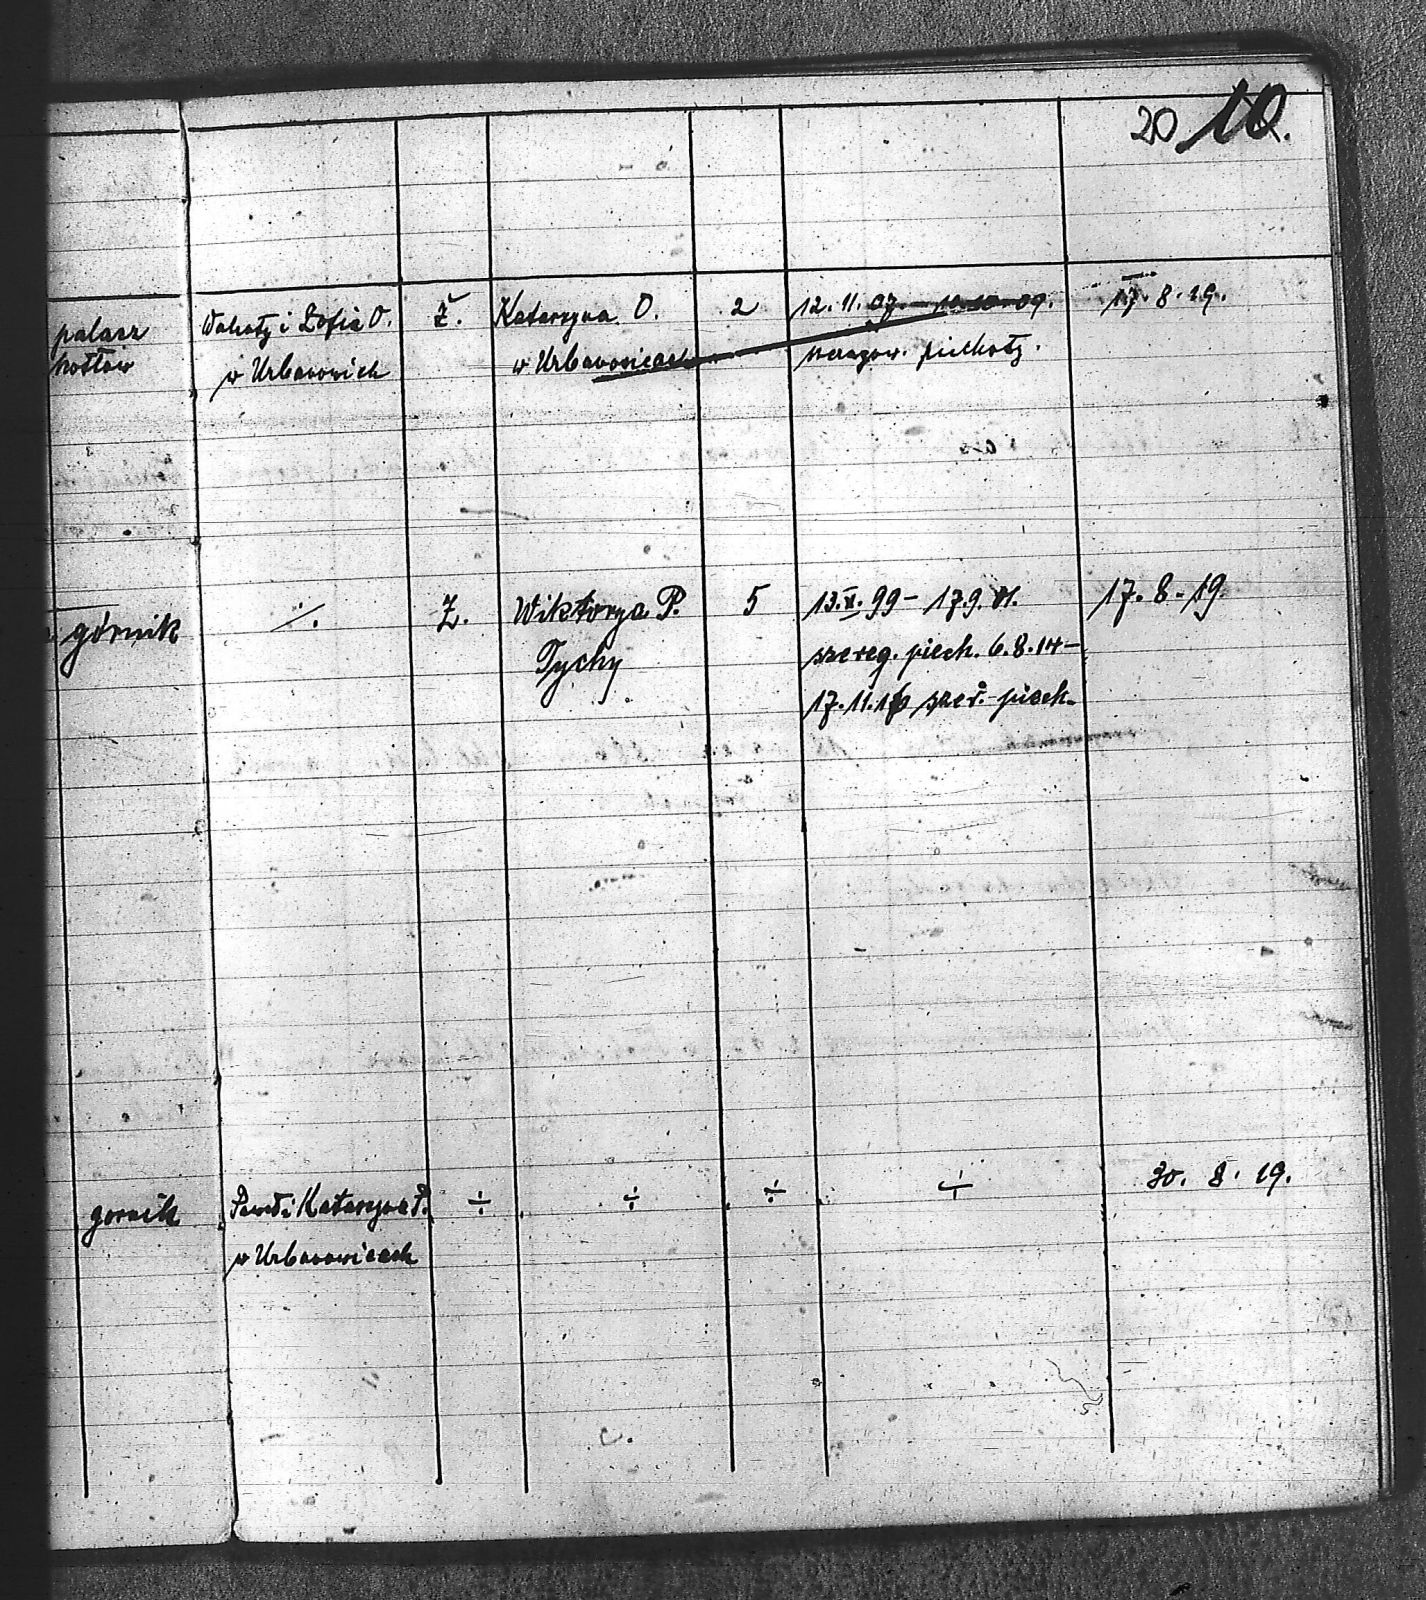 20 10.
palacz
kotłów
i Zofia O.
w Urbanowich
Ż.
Katarzyna O.
w Urbanowicach
2
12. 11. 07. — 10. 10. 09.
szeregow. piechoty.
17. 8. 19.
górnik
./.
Ż.
Wiktorya P.
Tychy
5
13. XI. 99 – 17.9. 01.
szereg. piech. 6.8.14 –
17. 11. 16 szer. piech.
17. 8. 19.
gornik
Paweł i Katarzyna P.
w Urbanowicach
÷
÷
÷
÷
30. 8. 19.